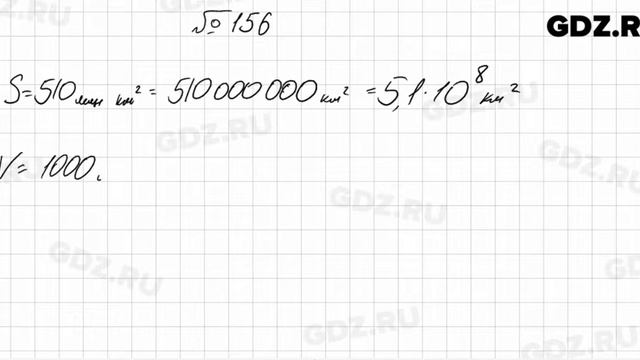 № 156
GDZ.R
S = 510 млн км² = 510 000 000 км² = 5,1 · 10⁸ км²
V = 1000.
GDZ.RU
GDZ.RU
GDZ.RU
GDZ.RU
GDZ.RU
GDZ.RU